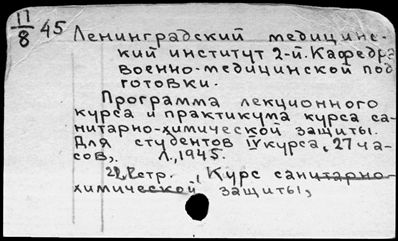 11/8 45
Ленинградский медицинс-
кий институт 2-й. Кафедра
военно-медицинской под
готовки.
Программа лекционного
курса и практикума курса са-
нитарно-химической защиты.
Для студентов IV курса, 27 ча-
сов,. Л., 1945.
стр. , Курс санитарно-
химической защиты,